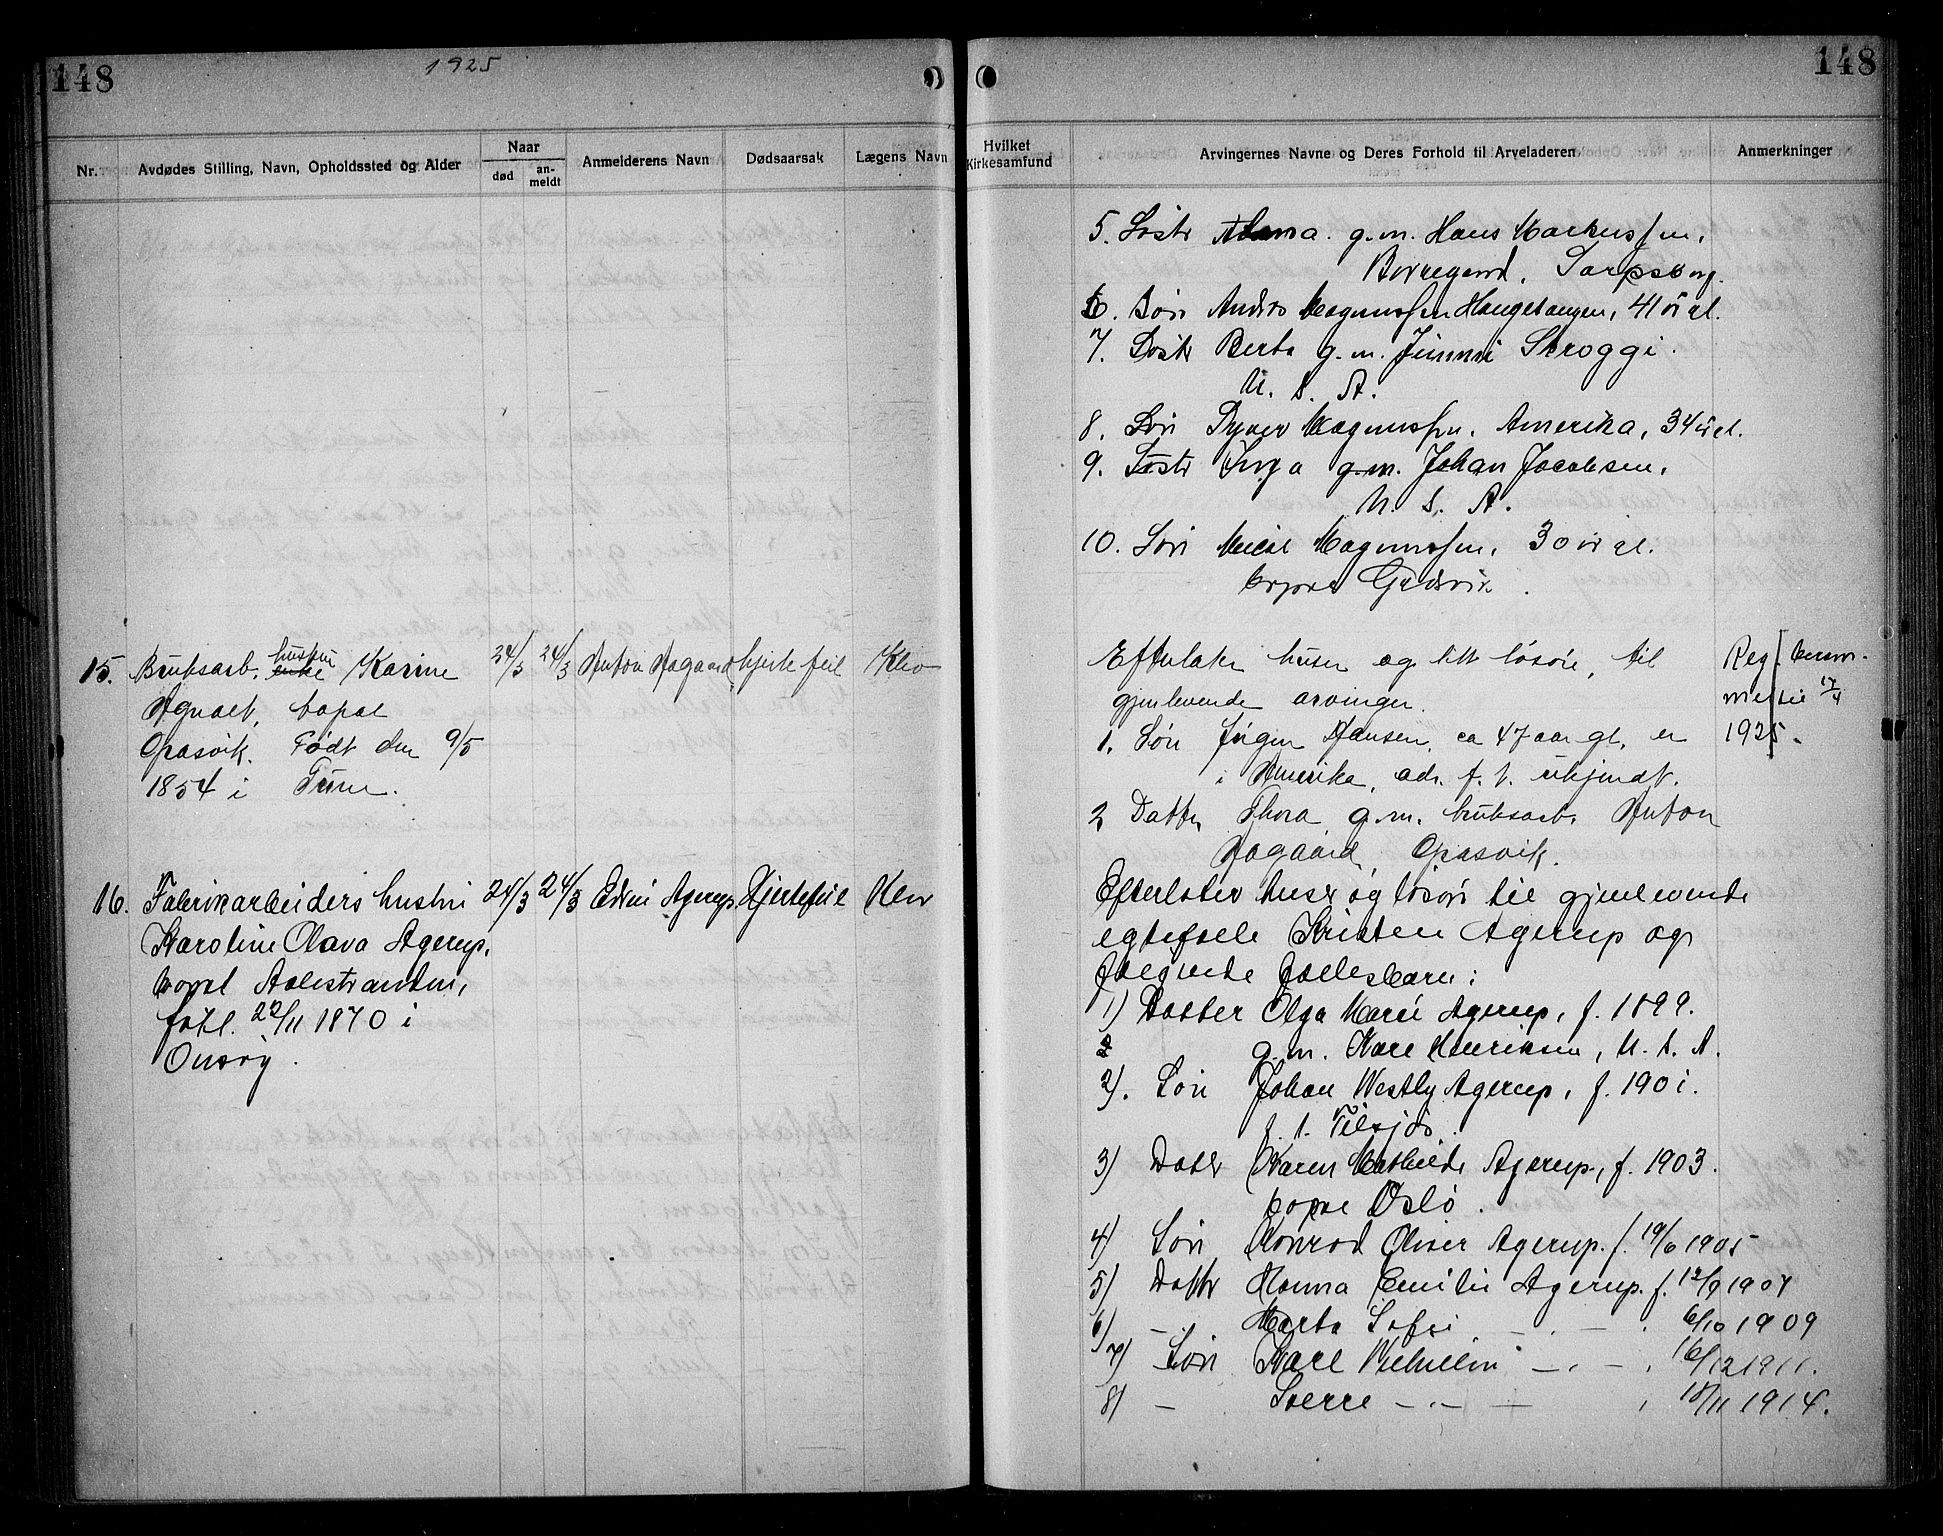 148
1925
148
Nr.
Avdødes Stilling, Navn, Opholdssted og Alder
Naar
død
an-
meldt
Anmelderens Navn
Dødsaarsak
Lægens Navn
Hvilket
Kirkesamfund
Arvingernes Navne og Deres Forhold til Arveladeren
Anmerkninger
5. g.m. Hans Markussen,
Borregaard, Sarpsborg.
6. Søn Anders Magnussen Haugetangen, 41 år gl.
7. Berta g.m. Jimmi Skroggi.
U. S. A.
8. Søn Magnussen. Amerika, 34 år gl.
9. Inga g.m. Johan Jacobsen,
U. S. A.
10. Søn Magnussen, 30 år gl.
15. Bruksarb. hustru enke Karine
Agnalt, bopæl
Græsvik. Født den 9/5
1854 i Tune.
24/3 24/3 Anton Aagaard hjertefeil
Efterlater huser og litt løsøre, til
gjenlevende arvinger.
1. Søn Jørgen Hansen, ca 47 aar gl. er
i Amerika, adr. f. t. ukjendt.
2 Datter Thora g.m. bruksarb. Anton
Aagaard, Græsvik.
Reg
17/4
1925.
16. Fabrikarbeiders hustru
Karoline Olava Agerup,
bopæl Aalestranden,
født. 22/11 1870 i
Onsøy.
24/3 24/3 Edvin Agerup Hjertefeil
Efterlater huser og løsøre til gjenlevende
egtefelle Kristen Agerup og
følgende fællesbarn:
1) Datter Olga Marie Agerup, f. 1899.
g.m. Karl Henriksen, U. S. A.
2). Søn Johan Westly Agerup, f. 1901.
f. t. Tilsjøs.
3) Datter Karen Mathilde Agerup, f. 1903.
bopæl Oslo.
4) Søn Konrad Oliver Agerup. f. 19/6 1905
5) Datter Hanna Emilie Agerup. f. 12/9 1907
6) — Marta Sofie — . — . 6/10 1909
7) Søn Karl Vilhelm — . — . 16/12 1911.
8) — Sverre — . — — 18/11 1914.